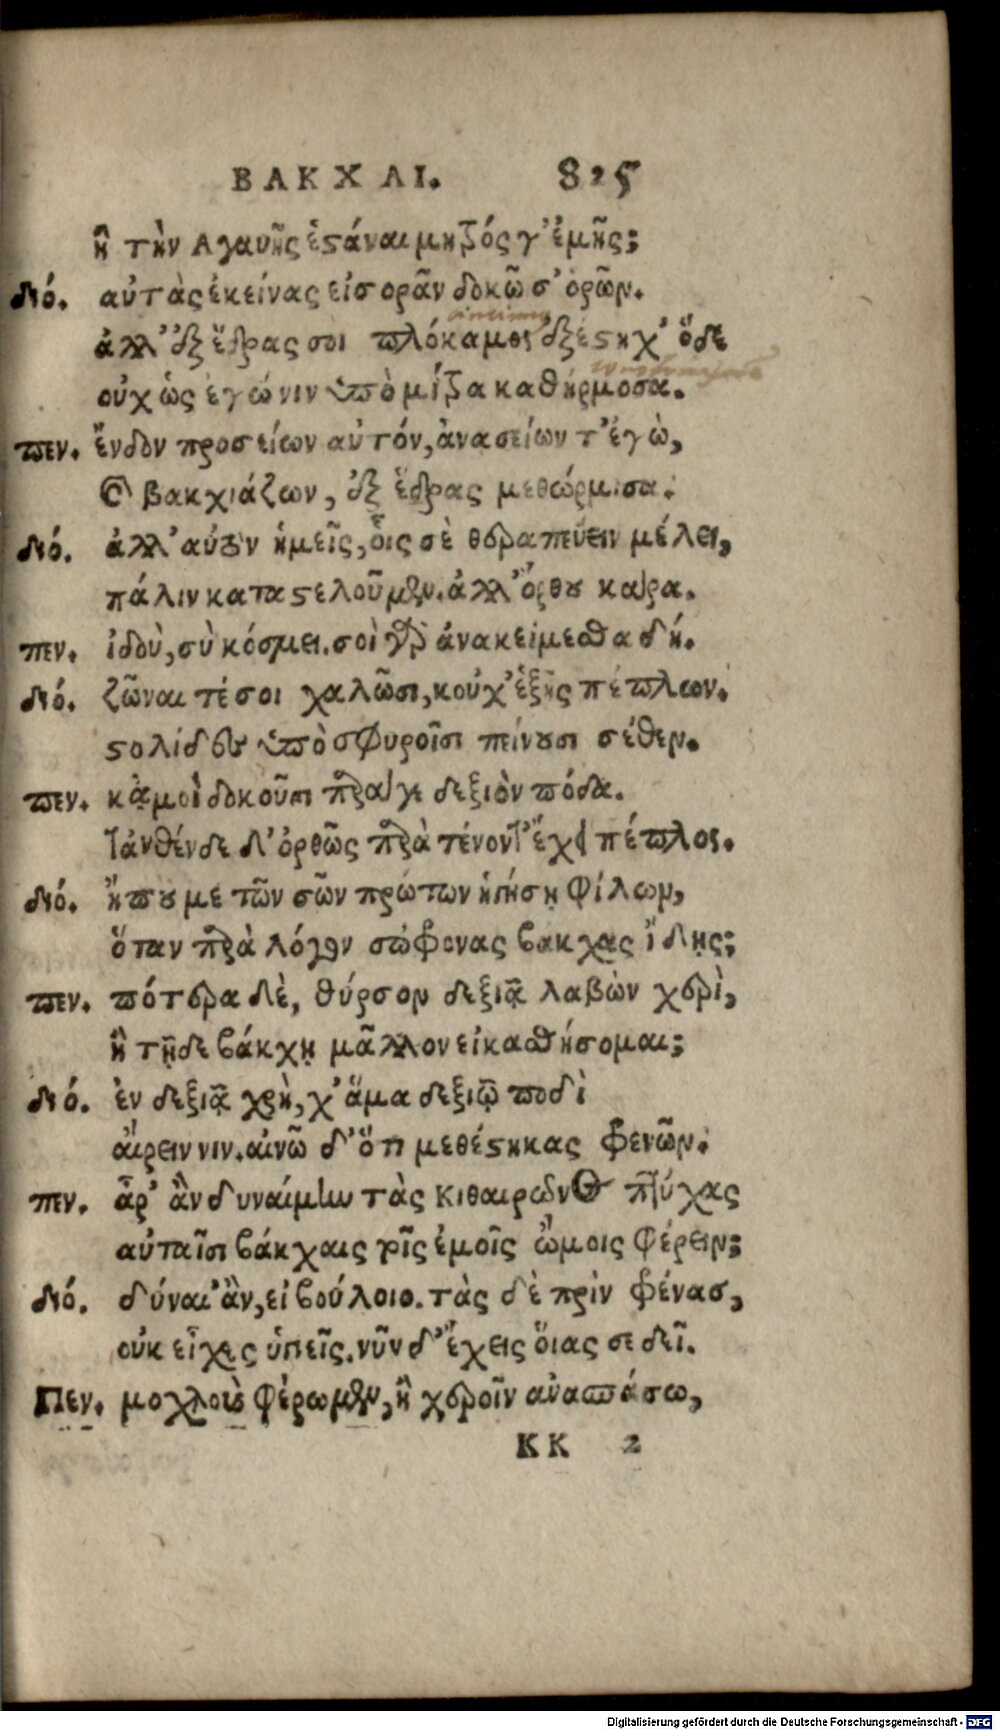 ΒΑΚΧΑΙ. 825
ἢ τὴν Αγαυῆς ἑστάναι μητρός γ' ἐμῆς;
διό. αὐτὰς ἐκείνας εἰσορᾶν δοκῶ σ' ὁρῶν.
ἀλλ' ἐξ ἕδρας σοι πλόκαμος ἐξέστηχ' ὅδε
οὐχ ὡς ἐγώ νιν ὑπὸ μίτρα καθήρμοσα.
πεν. ἔνδον προσείων αὐτόν, ἀνασείων τ' ἐγὼ,
καὶ βακχιάζων, ἐξ ἕδρας μεθώρμισα.
διό. ἀλλ' αὐτὸν ἡμεῖς, οἷς σὲ θεραπεύειν μέλει,
πάλιν καταστελοῦμεν. ἀλλ' ὄρθου κάρα.
πεν. ἰδοὺ, σὺ κόσμει. σοὶ γὰρ ἀνακείμεσθα δή.
διό. ζῶναι τέ σοι χαλῶσι, κοὐχ' ἑξῆς πέπλων.
στολίδες ὑπὸ σφυροῖσι τείνουσι σέθεν.
πεν. κᾀμοὶ δοκοῦσι παρά γε δεξιὸν πόδα.
τἀνθένδε δ' ὀρθῶς παρὰ τένοντ' ἔχει πέπλος.
διό. ἤ που με τῶν σῶν πρώτων ἡγήσῃ φίλων,
ὅταν παρὰ λόγον σώφρονας βάκχας ἴδῃς;
πεν. πότερα δὲ, θύρσον δεξιᾷ λαβὼν χερὶ,
ἢ τῇδε βάκχῃ μᾶλλον εἰκασθήσομαι;
διό. ἐν δεξιᾷ χρὴ, χ' ἅμα δεξιῷ ποδὶ
αἴρειν νιν. αἰνῶ δ' ὅτι μεθέστηκας φρενῶν.
πεν. ἆρ' ἂν δυναίμην τὰς Κιθαιρῶνος πτύχας
αὐταῖσι βάκχαις τοῖς ἐμοῖς ὤμοις φέρειν;
διό. δύναι' ἂν, εἰ βούλοιο. τὰς δὲ πρὶν φρένας,
οὐκ εἶχες ὑγιεῖς. νῦν δ' ἔχεις οἵας σε δεῖ.
Πεν. μοχλοὺς φέρωμεν, ἢ χεροῖν ἀνασπάσω,
KK 2
Digitalisierung gefördert durch die Deutsche Forschungsgemeinschaft - DFG